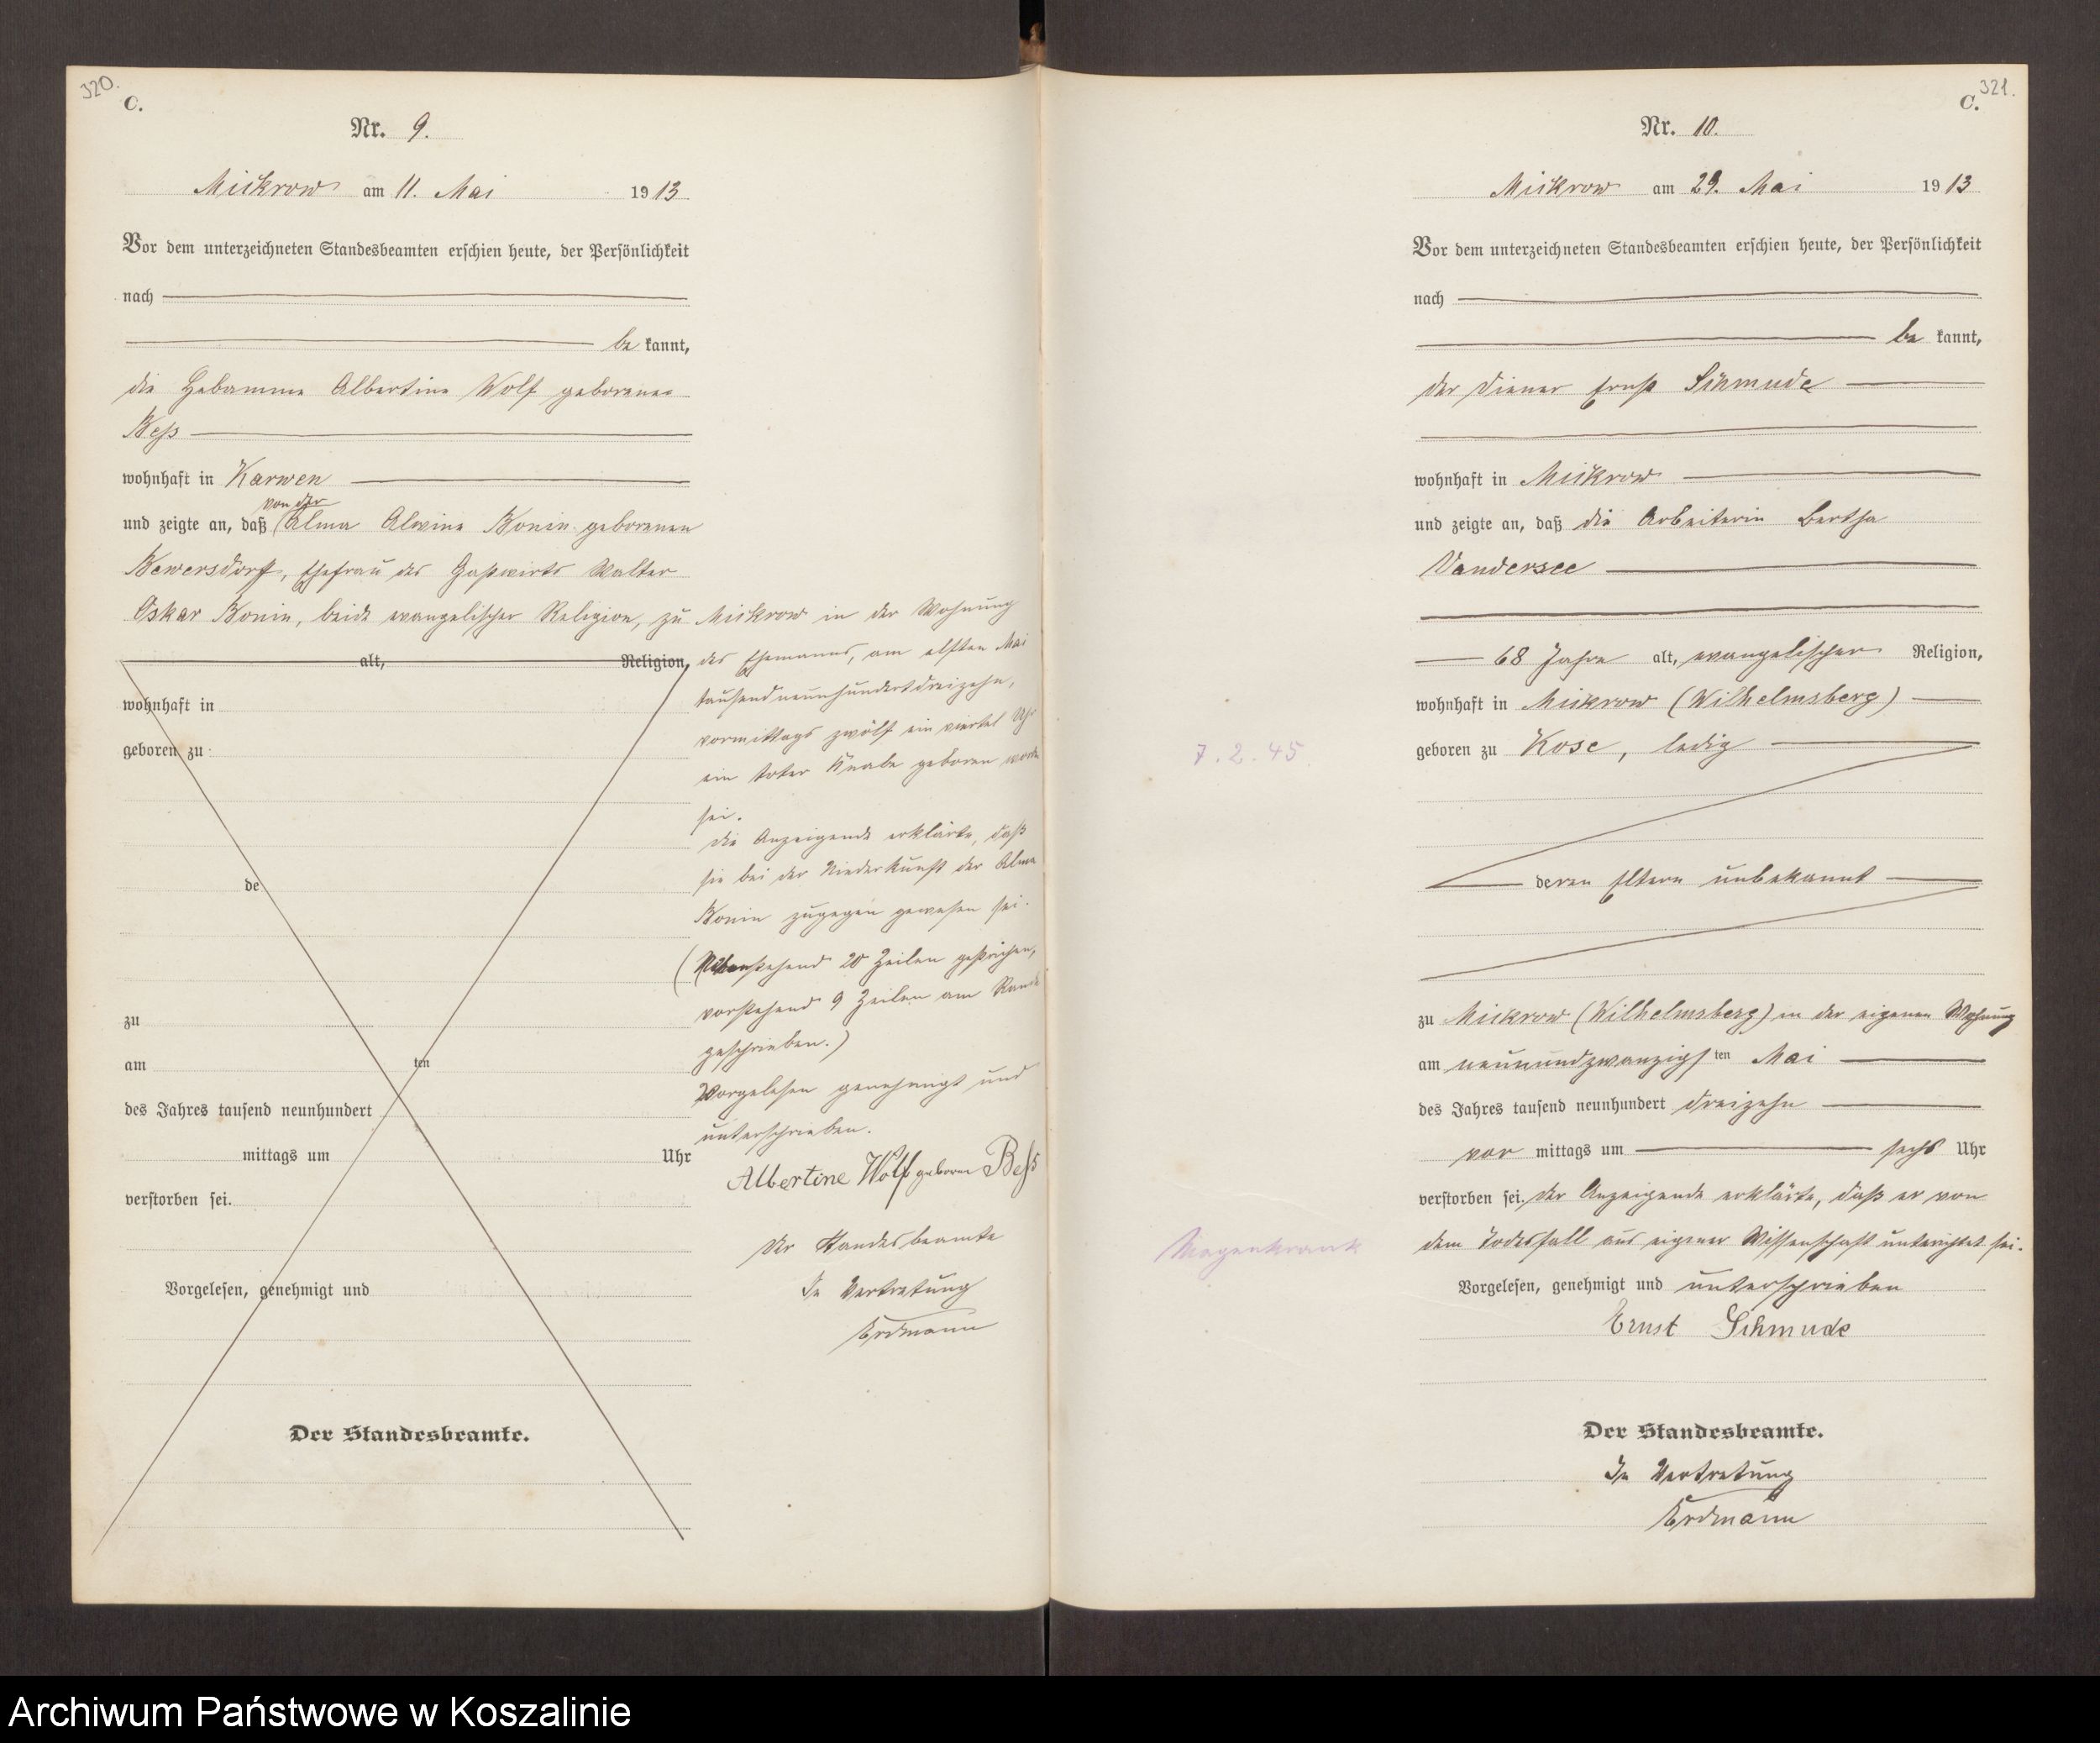 320.
C.
Nr. 9.
Mickrow am 11. Mai 1913
Vor dem unterzeichneten Standesbeamten erschien heute, der Persönlichkeit
nach
be kannt,
die Hebamme Albertine Wolf geborene
Bess
wohnhaft in Karwen
von der
und zeigte an, daß Alma Alwine Bonin geborenen
Bewersdorff, Ehefrau des Gastwirts Walter
Oskar Bonin, beide evangelischer Religion, zu Mickrow in der Wohnung
alt, Religion, des Ehemanns, am elften Mai
tausendneunhundertdreizehn,
wohnhaft in
vormittags zwölf ein viertel Uhr
geboren zu
ein toter Knabe geboren worden
sei.
Die Anzeigende erklärte, daß
sie bei der Niederkunft der Alma
de
Bonin zugegen gewesen sei.
(Nebenstehend 20 Zeilen gestrichen,
vorstehend 9 Zeilen am Rande
zu
geschrieben.)
am ten
Vorgelesen genehmigt und
des Jahres tausend neunhundert
unterschrieben.
mittags um Uhr
Albertine Wolf geborne Bess
verstorben sei.
Der Standesbeamte
Vorgelesen, genehmigt und
In Vertretung
Erdmann
Der Standesbeamte.
321.
C.
Nr. 10.
Mickrow am 29. Mai 1913
Vor dem unterzeichneten Standesbeamten erschien heute, der Persönlichkeit
nach
be kannt,
der Diener Ernst Schmude
wohnhaft in Mickrow
und zeigte an, daß die Arbeiterin Bertha
Vandersee
68 Jahre alt, evangelischer Religion,
wohnhaft in Mickrow (Wilhelmsberg)
7.2.45
geboren zu Kose, ledig
deren Eltern unbekannt
zu Mickrow (Wilhelmsberg) in der eigenen Wohnung
am neunundzwanzigsten Mai
des Jahres tausend neunhundert dreizehn
vor mittags um sechs Uhr
verstorben sei. Der Anzeigende erklärte, daß er von
Magenkrank
dem Todesfall aus eigener Wissenschaft unterichtet sei.
Vorgelesen, genehmigt und unterschrieben
Ernst Schmude
Der Standesbeamte.
In Vertretung
Erdmann
Archiwum Państwowe w Koszalinie